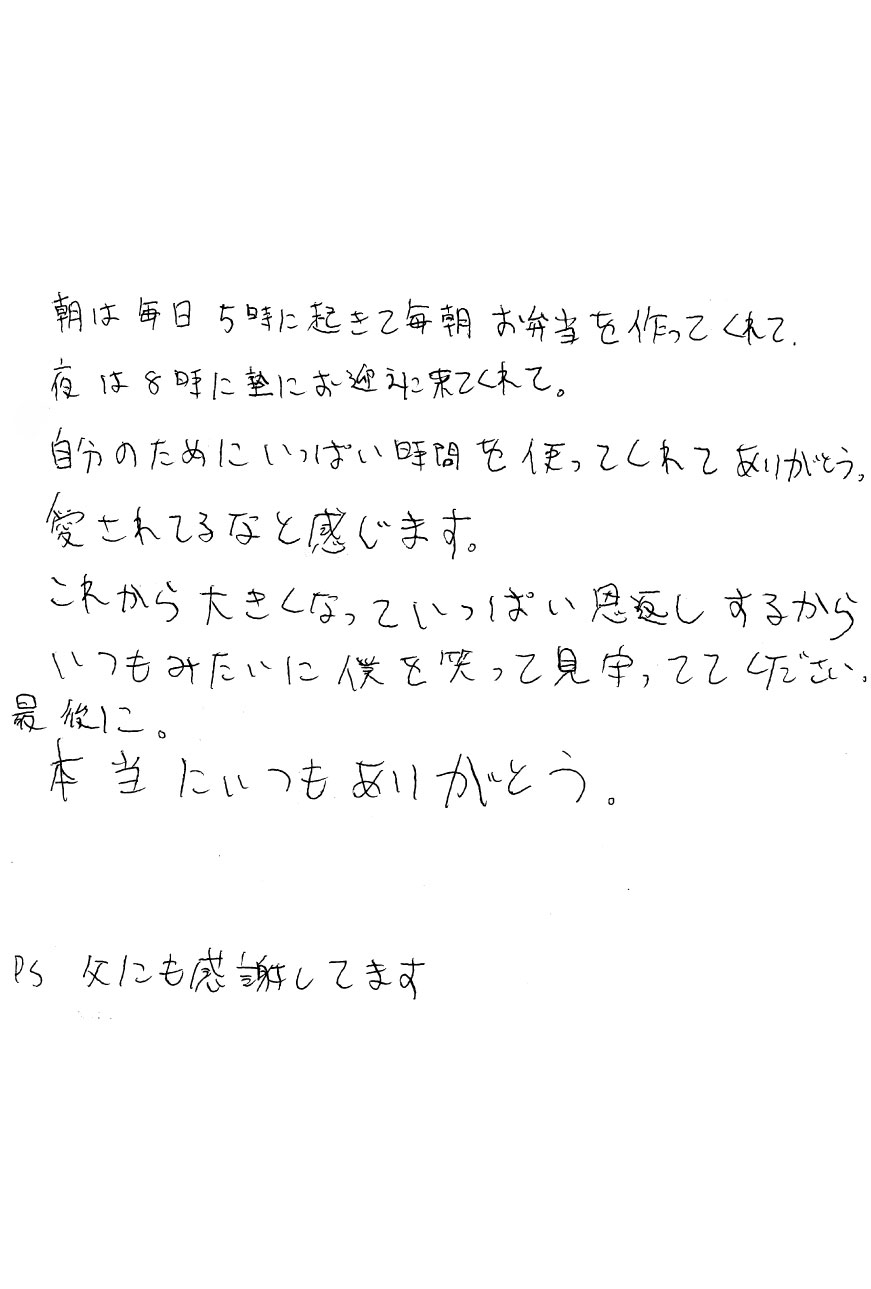 朝は毎日5時に起きて毎朝お弁当を作ってくれて、
夜は8時に塾にお迎えに来てくれて。
自分のためにいっぱい時間を使ってくれてありがとう。
愛されてるなと感じます。
これから大きくなっていっぱい恩返しするから
いつもみたいに僕を笑って見守っててください。
最後に。
本当にいつもありがとう。
PS 父にも感謝してます